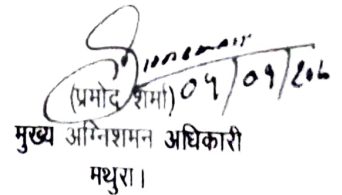 (प्रमोद शर्मा) 04/09/20
मुख्य अग्निशमन अधिकारी
मथुरा।